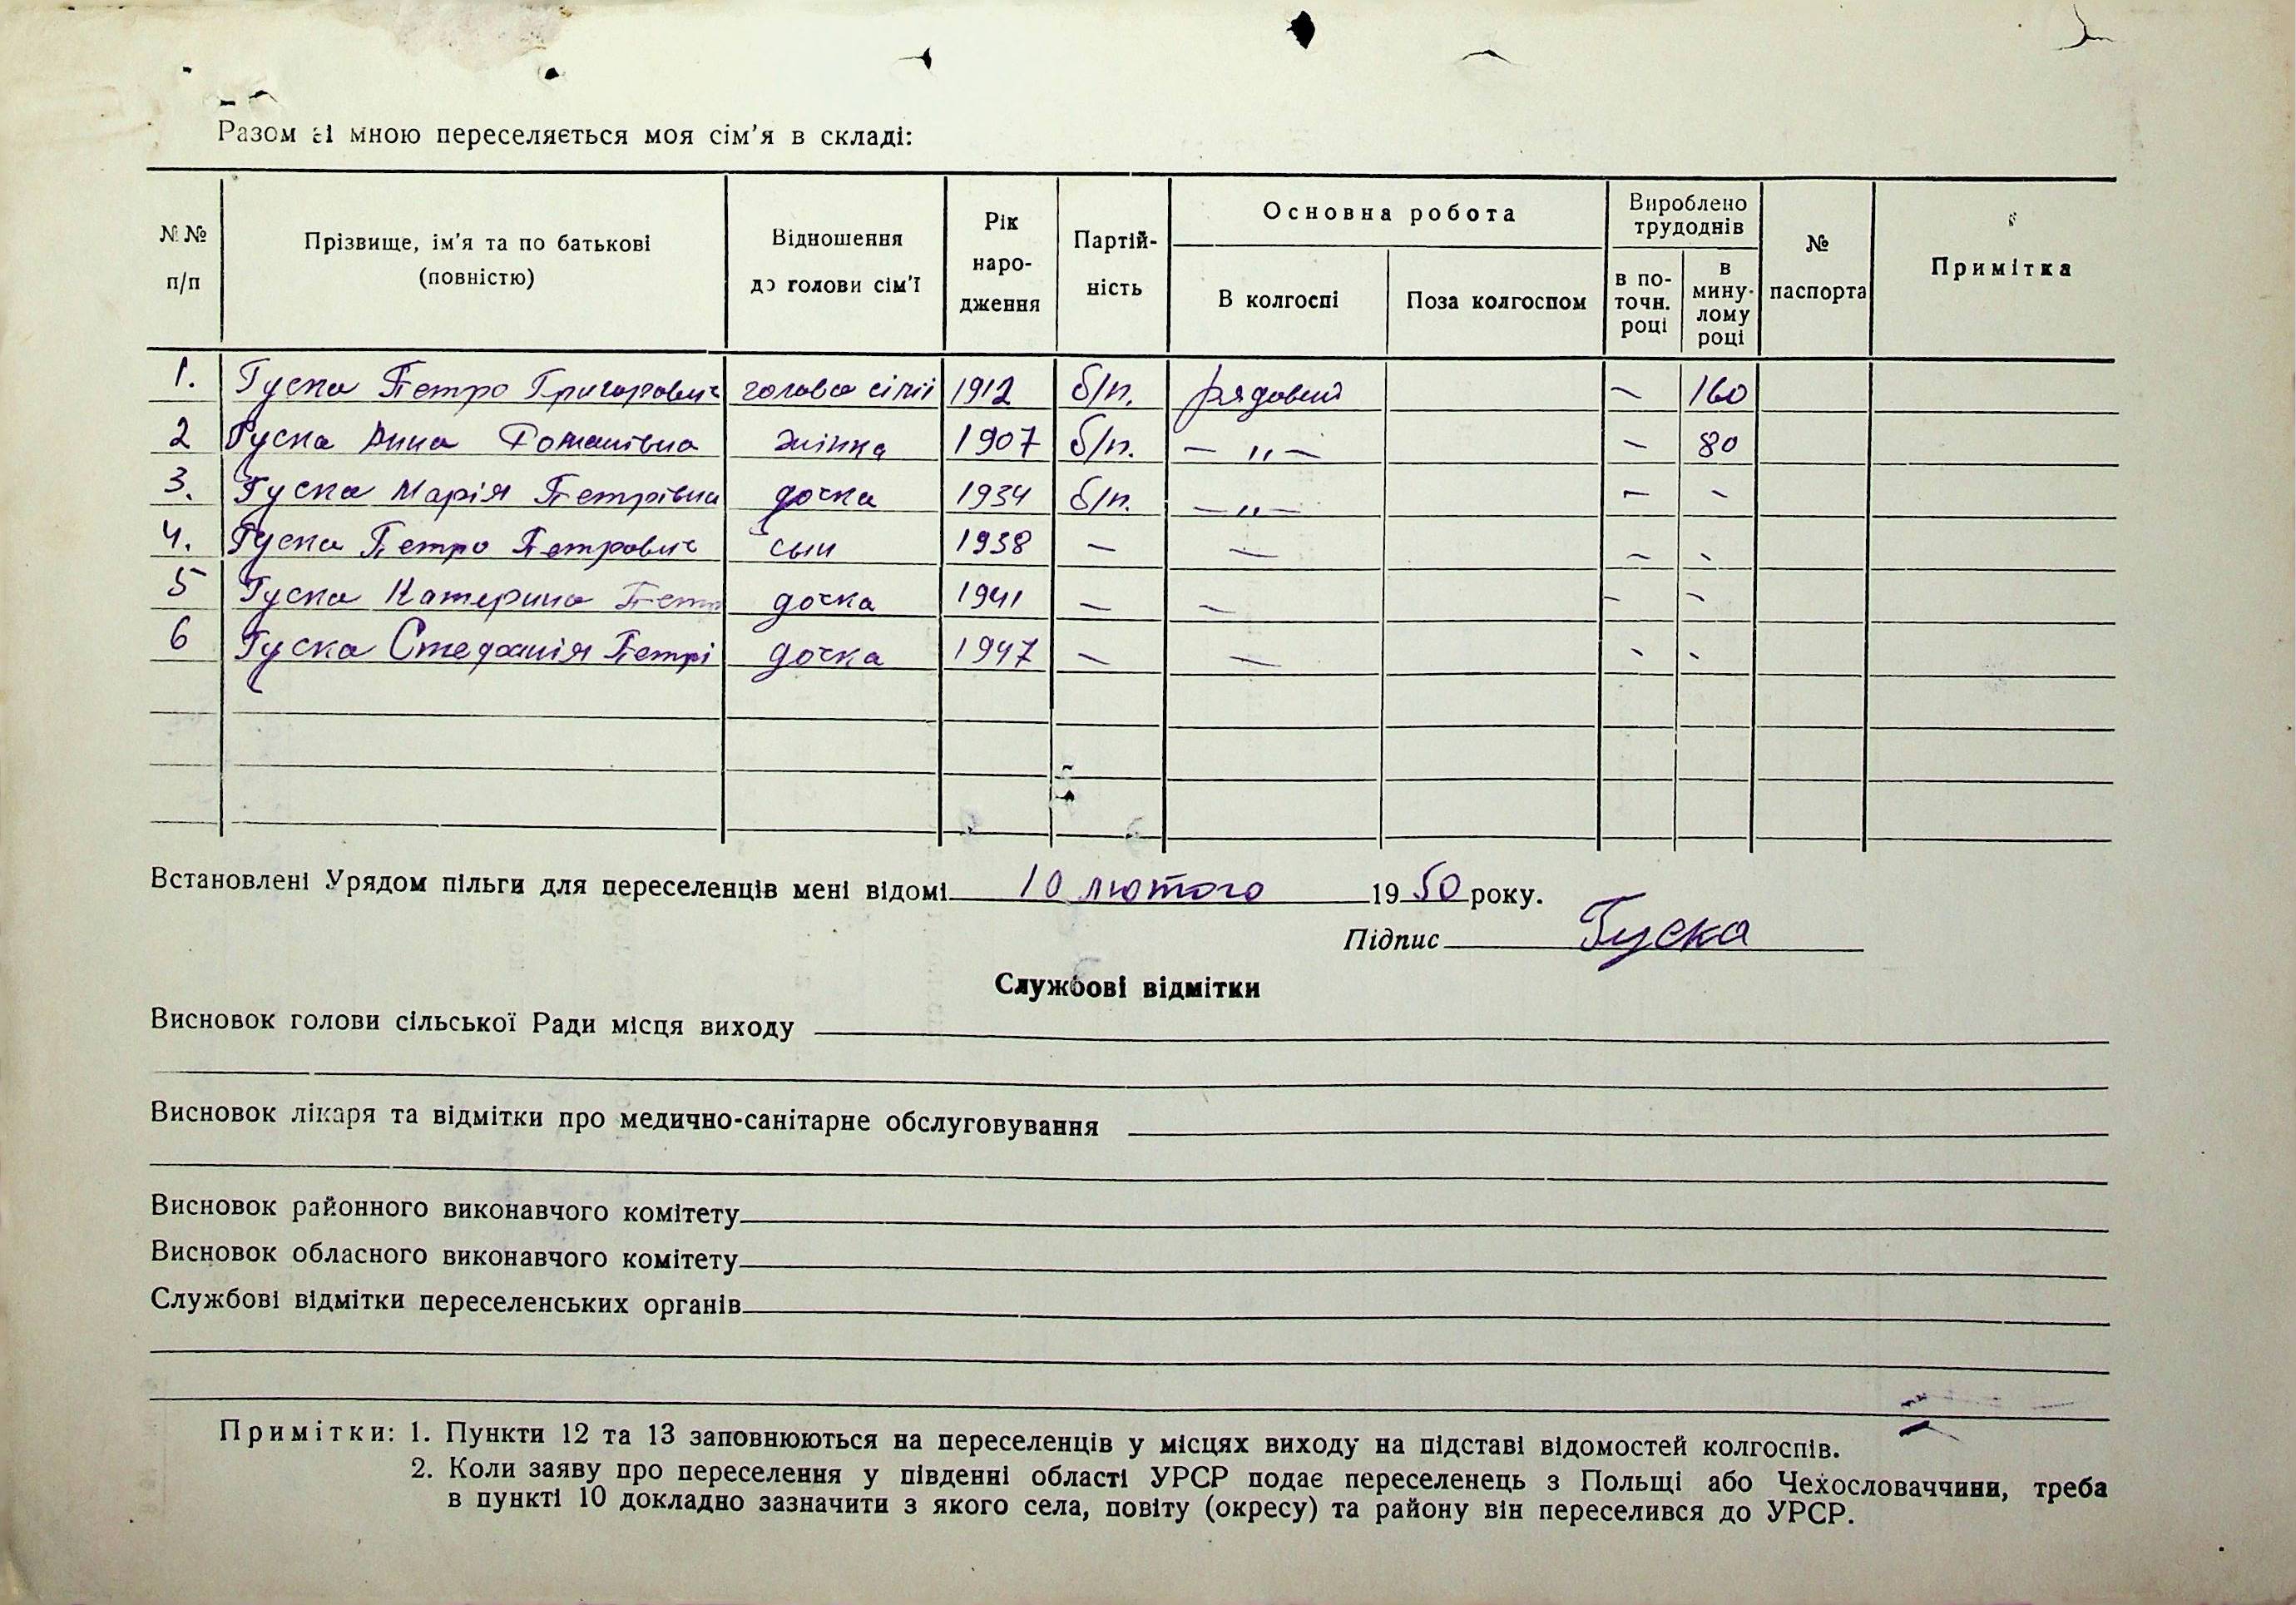 Разом зі мною переселяється моя сім'я в складі:
№№ п/п
Прізвище, ім'я та по батькові (повністю)
Відношення до голови сім'ї
Рік народження
Партійність
Основна робота
В колгоспі
Поза колгоспом
Вироблено трудоднів
в поточн. році
в минулому році
№ паспорта
Примітка
1. Гуска Петро Григорович голова сімї 1912 б/п. рядовий — 160
2 Гуска Анна Романівна жінка 1907 б/п. — „ — — 80
3. Гуска Марія Петрівна дочка 1934 б/п. — „ — — —
4. Гуска Петро Петрович сын 1938 — — — —
5 Гуска Катерина Петр дочка 1941 — — — —
6 Гуска Стефанія Петрі дочка 1947 — — — —
Встановлені Урядом пільги для переселенців мені відомі 10 лютого 1950 року.
Підпис Гуска
Службові відмітки
Висновок голови сільської Ради місця виходу
Висновок лікаря та відмітки про медично-санітарне обслуговування
Висновок районного виконавчого комітету
Висновок обласного виконавчого комітету
Службові відмітки переселенських органів
Примітки: 1. Пункти 12 та 13 заповнюються на переселенців у місцях виходу на підставі відомостей колгоспів.
2. Коли заяву про переселення у південні області УРСР подає переселенець з Польщі або Чехословаччини, треба
в пункті 10 докладно зазначити з якого села, повіту (окресу) та району він переселився до УРСР.